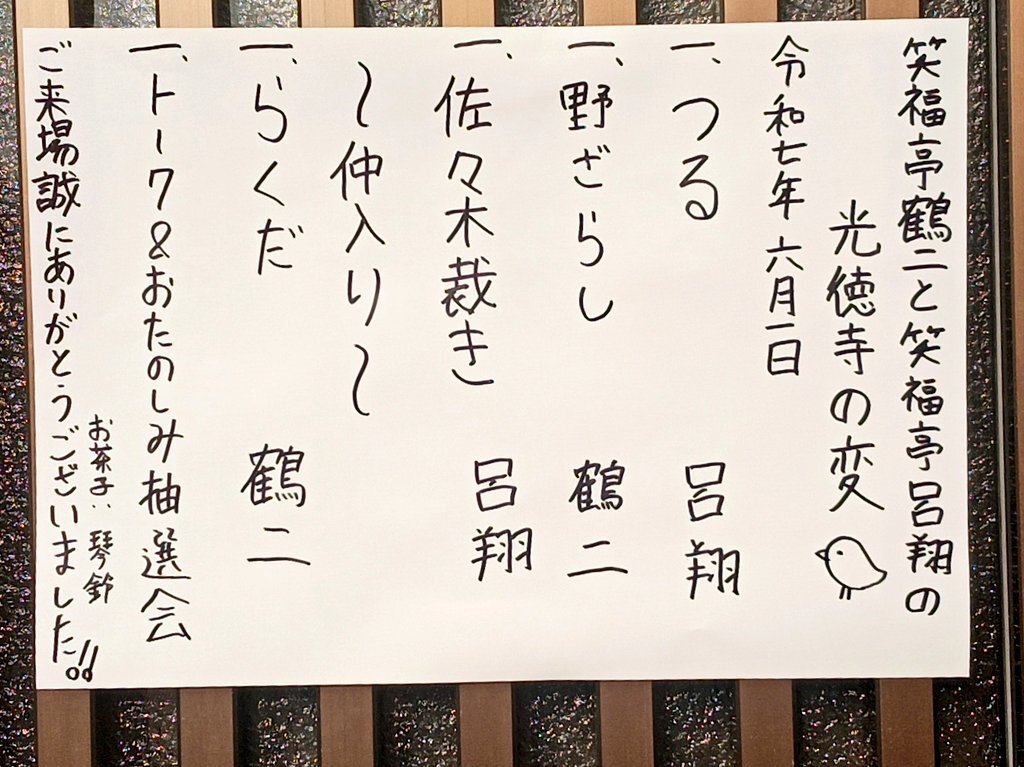 笑福亭鶴二と笑福亭呂翔の
光徳寺の変
令和七年 六月一日
一、つる 呂翔
一、野ざらし 鶴二
一、佐々木裁き 呂翔
〜仲入り〜
一、らくだ 鶴二
一、トーク&おたのしみ抽選会
お茶子:琴鈴
ご来場誠にありがとうございました!!